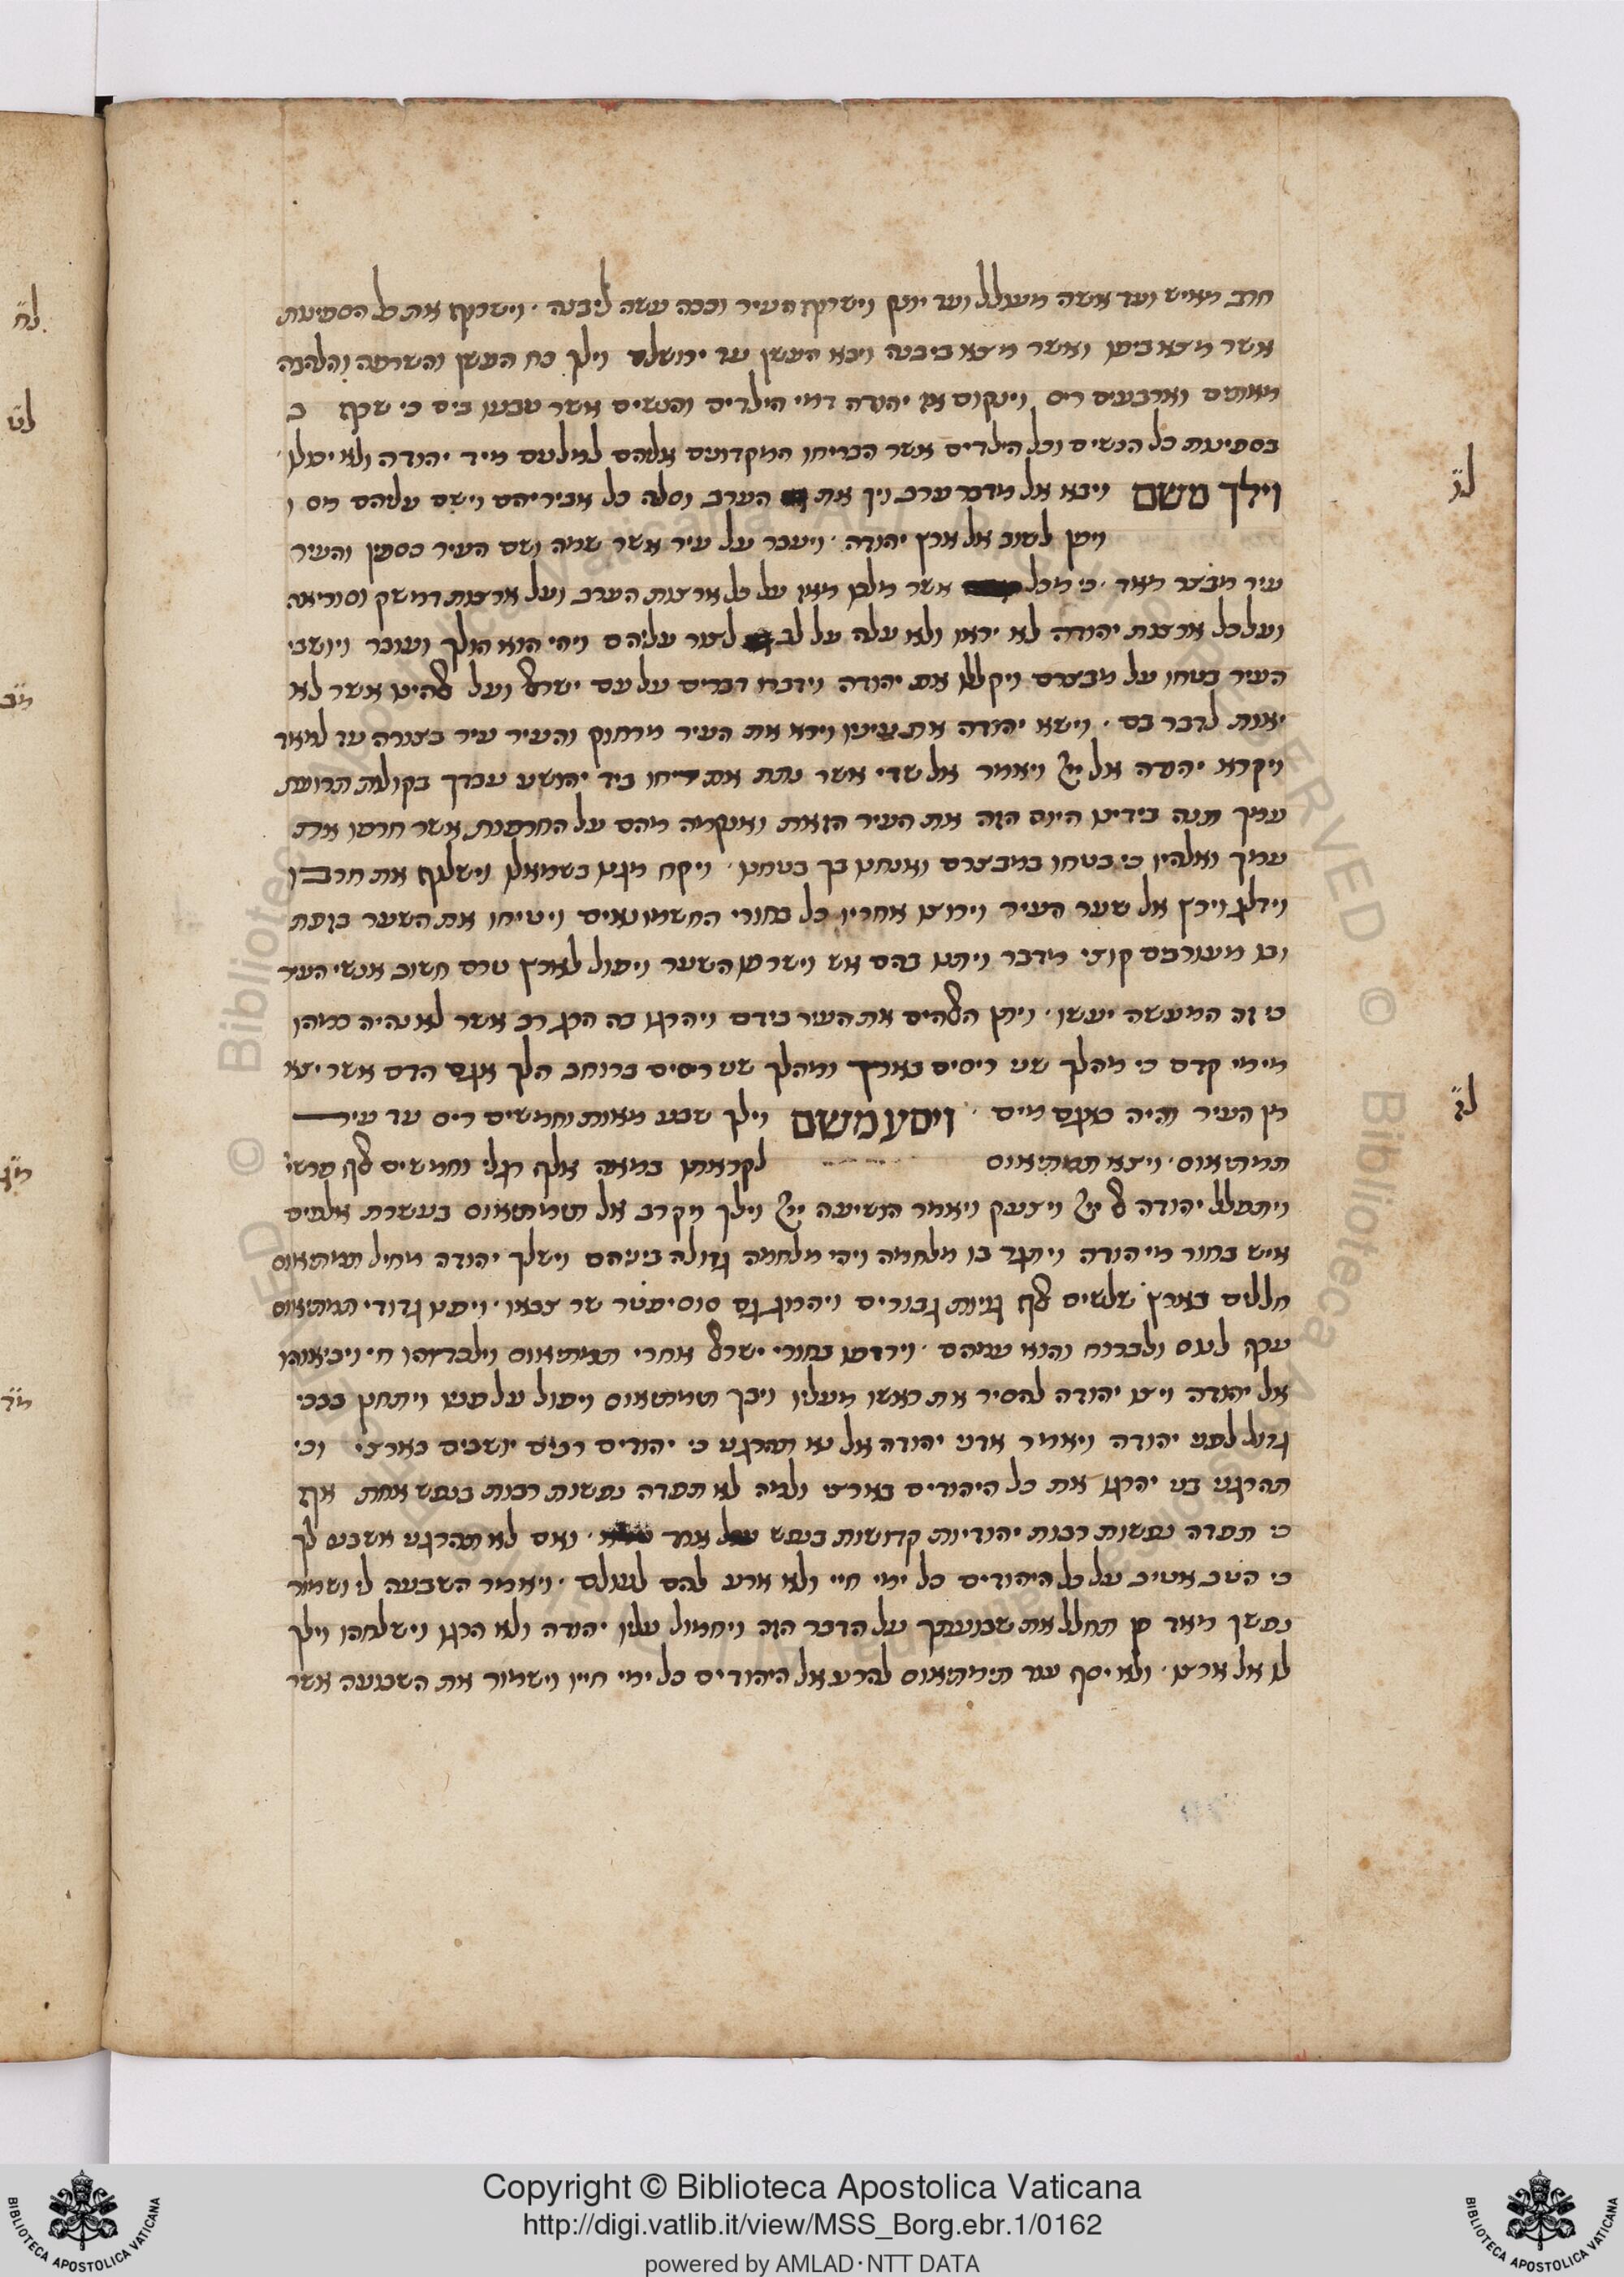 חרב מאיש ועד אשה מעולל ועד יונק וישרוף העיר וככה עשה ליבנה · וישרוף את כל הספינות
אשר מצא ביפו ואשר מצא ביבנה ויבא העשן עד ירושלם וילך כח העשן והשרפה והלהבה
מאתים וארבעים ריס וינקום אז יהודה דמי הילדים והנשים אשר טבעו בים כי שרף ב
בספינות כל הנשים וכל הילדים אשר הבריחו המקדונים אליהם למלטם מיד יהודה ולא יכלו
וילך משם ויבא אל מדבר ערב ויך את הערב וסלה כל אביריהם וישם עליהם מס ו
ויפן לשוב אל ארץ יהודה · ויעבר על עיר אשר שמה ושם העיר כספון והעיר
עיר מבצר מאד · כי מכל אשר מלכו מאז על כל ארצות הערב ועל ארצות דמשק וסוריאה
ועל כל ארצות יהודה לא יראו ולא עלה על לב לצור עליהם ויהי הוא הולך ועובר ויושבי
העיר בטחו על מבצרם ויקללו את יהודה וידברו דברים על עם ישראל ועל אלהינו אשר לא
יאות לדבר בם · וישא יהודה את עיניו וירא את העיר מרחוק והעיר עיר בצורה עד למאד
ויקרא יהודה אל ייי ויאמר אל שדי אשר נתת את יריחו ביד יהושע עבדך בקולות תרועת
עמך תנה בידינו היום הזה את העיר הזאת ואנקמה מהם על החרפות אשר חרפו את
עמך ואלהיו כי בטחו במבצרם ואנחנו בך בטחנו · ויקח מגינו בשמאלו וישלוף את חרבו
וידלג וירץ אל שער העיר וירוצו אחריו כל בחורי החשמונאים ויטיחו את השער בזפת
ובו מעורבים קוצי מדבר ויתנו בהם אש וישרפו השער ויפול לארץ טרם חשוב אנשי העיר
כי זה המעשה יעשו · ויתן האלהים את העיר בידם ויהרגו בה הרג רב אשר לא נהיה כמהו
מימי קדם כי מהלך שני ריסים באורך ומהלך שני ריסים ברוחב הלך אגם הדם אשר יצא
מן העיר והיה כאגם מים · ויסע משם וילך שבע מאות וחמשים ריס עד עיר
תמתיאוס · ויצא תמתיאוס לקראתו במאה אלף רגלי וחמשים אלף פרשי׳
ויתפלל יהודה אל ייי ויצעק ויאמר הושיעה ייי וילך ויקרב אל תימתיאוס בעשרת אלפים
איש בחור מיהודה ויתגר בו מלחמה ויהי מלחמה גדולה ביניהם וישלך יהודה מחיל תמתיאוס
חללים בארץ שלשים אלף גויות גבורים ויהרוג גם סוסיפטר שר צבאו · ויפנו גדודי תמתיאוס
עורף לנוס ולברוח והוא עמהם · וירדפו בחורי ישראל אחרי תמתיאוס וילכדוהו חי ויביאוהו
אל יהודה ויצו יהודה להסיר את ראשו מעליו ויבך תמתיאוס ויפול על פניו ויתחנן בבכי
גדול לפני יהודה ויאמר אדני יהודה אל נא תהרגני כי יהודים רבים יושבים בארצי וכי
תהרגני בני יהרגו את כל היהודים בארצי ולמה לא תפדה נפשות רבות בנפש אחת אף
כי תפדה נפשות רבות יהודיות קדושות בנפש אחד · ואם לא תהרגני אשבע לך
כי הטב אטיב על כל היהודים כל ימי חיי ולא ארע להם לעולם · ויאמר השבעה לי ושמור
נפשך מאד פן תחלל את שבועתך על הדבר הזה ויחמול עליו יהודה ולא הרגו וישלחהו וילך
לו אל ארצו · ולא יסף עוד תימתיאוס להרע אל היהודים כל ימי חייו וישמור את השבועה אשר
Copyright © Biblioteca Apostolica Vaticana
http://digi.vatlib.it/view/MSS_Borg.ebr.1/0162
powered by AMLAD·NTT DATA